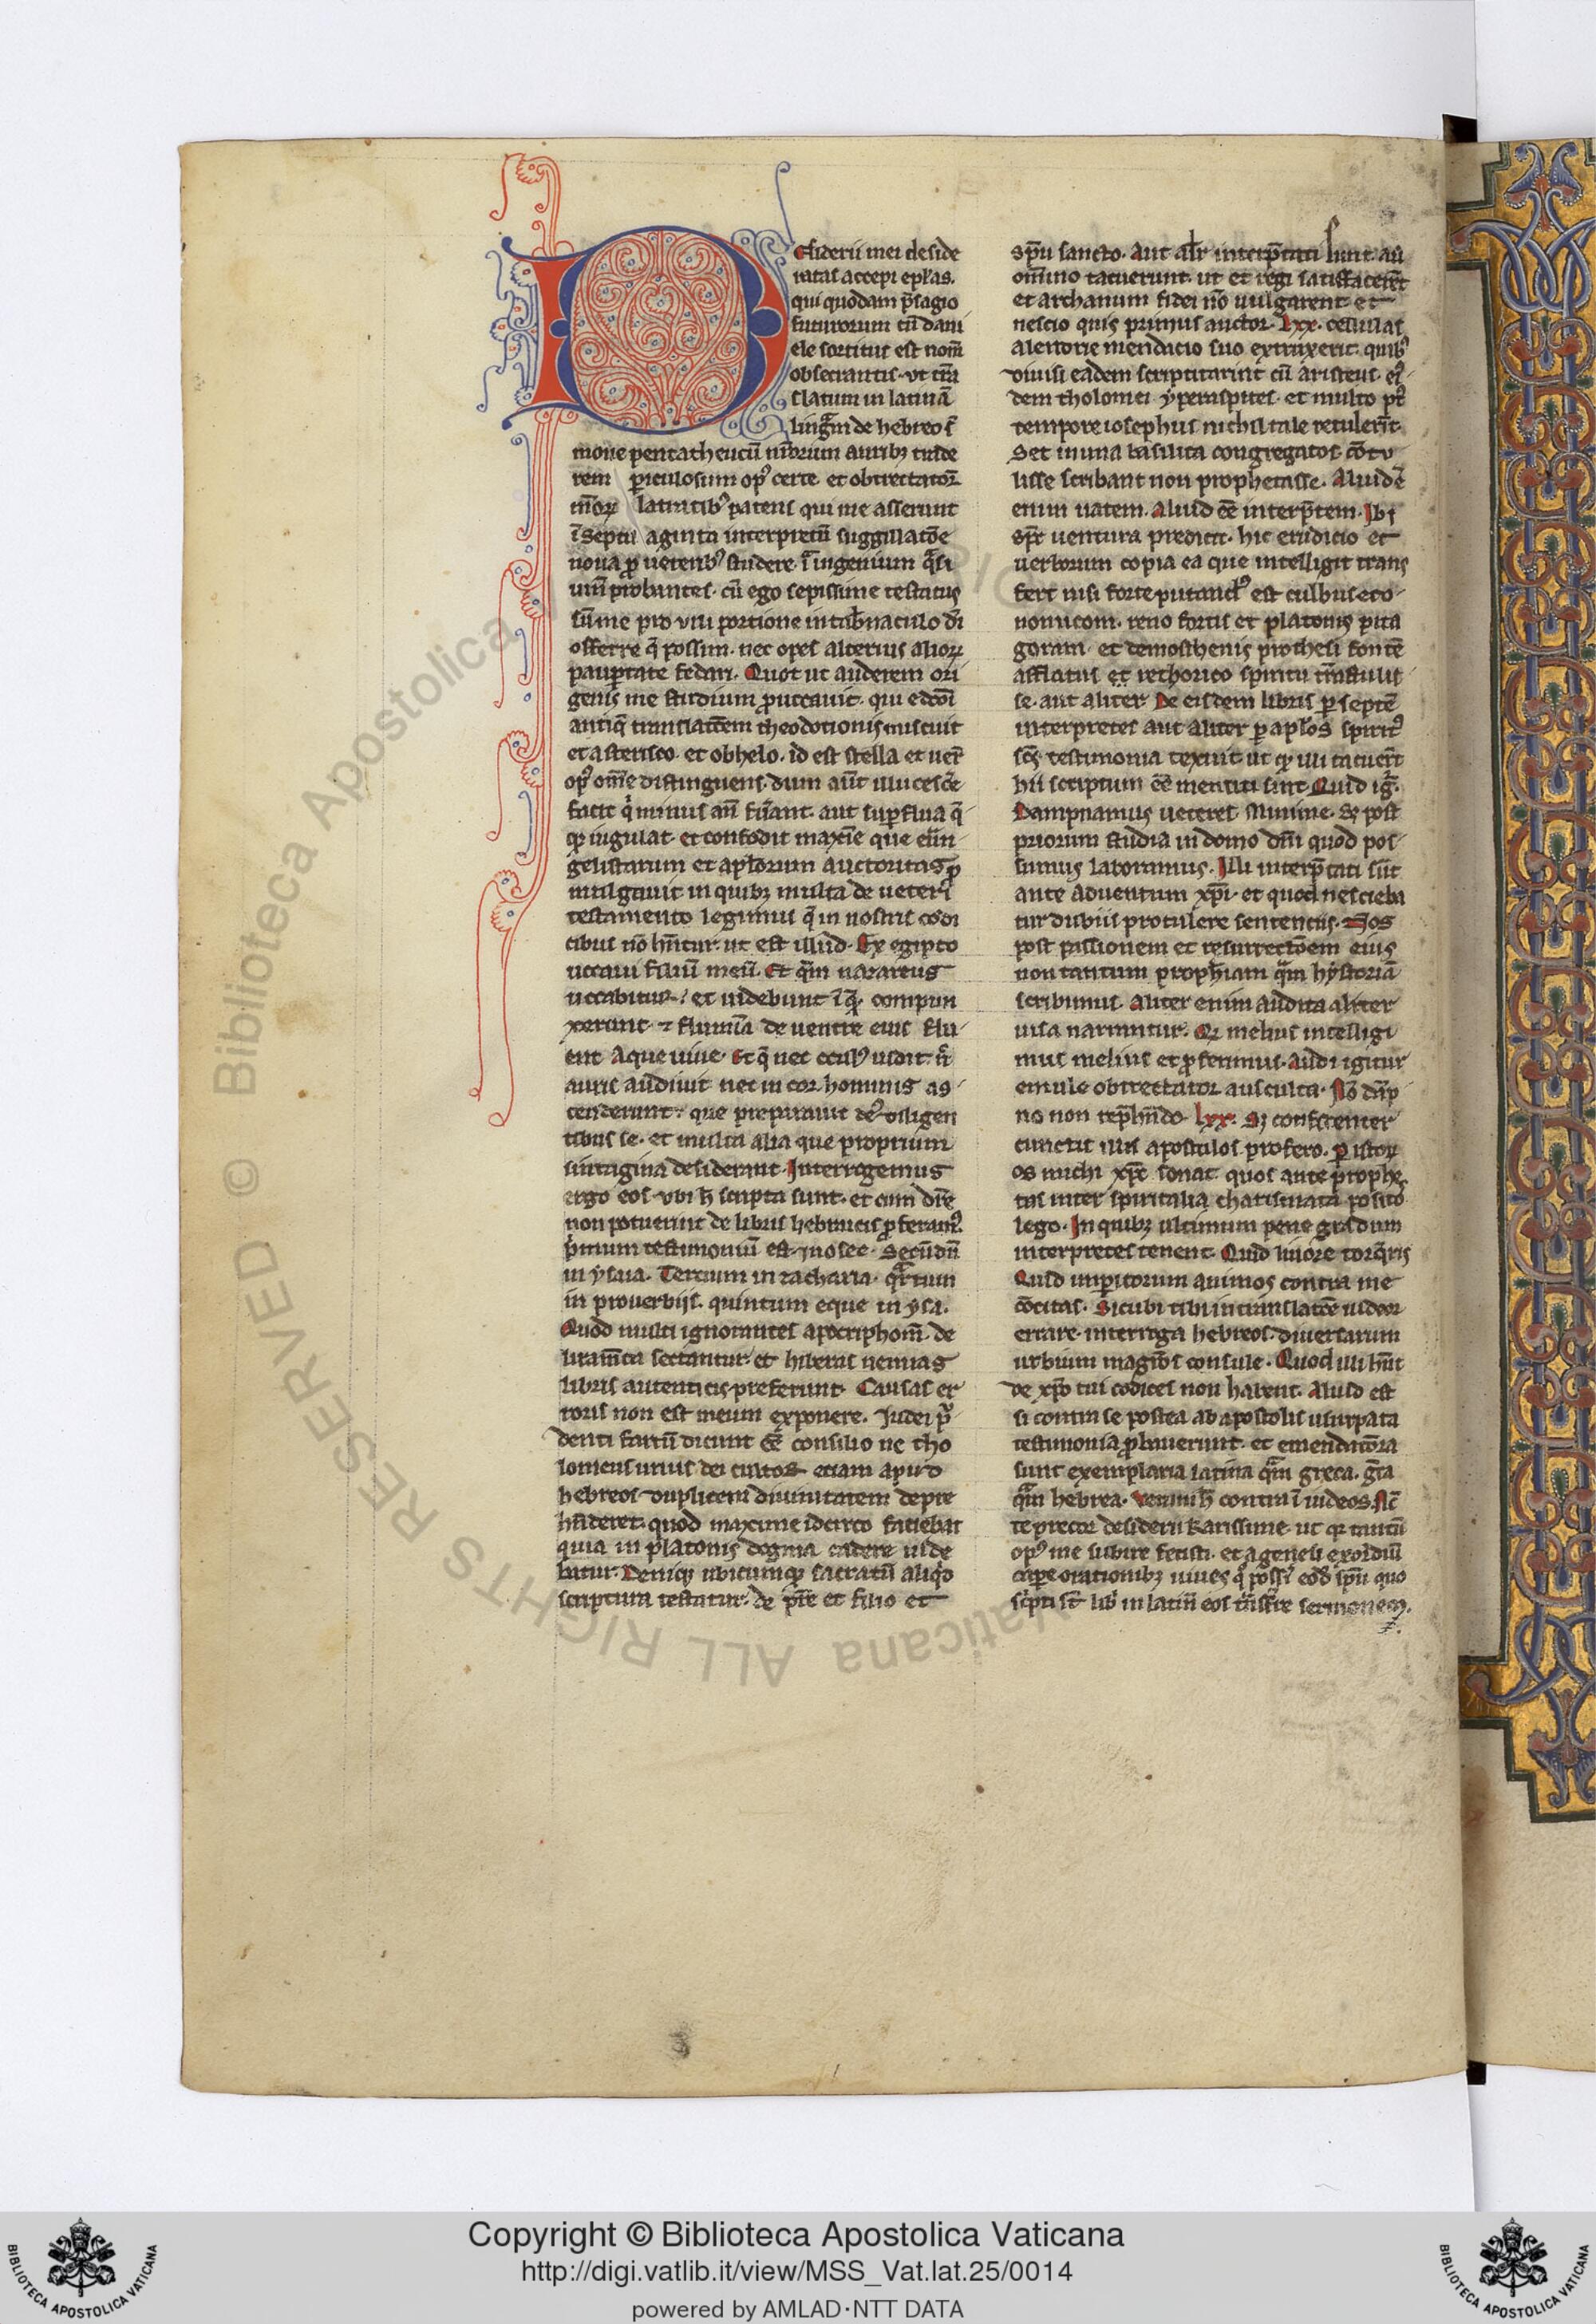 Desiderii mei deside
ratas accepi epl̃as.
qui quodam p̃sagio
futurorum cũ dani
ele sortitus est nom̃
obsecrantis. ut trã
slatum in latinã
linguã de hebreo s̃
mone pentatheucũ nr̃orum auribꝫ trade
rem ꝑiculosum opꝰ certe. et obtrectatoꝝ
meoꝝ latratibꝰ patens qui me asserunt
ĩ septuaginta interpretũ suggillatõe
noua ꝓ ueteribꝰ cudere. ĩ ingenium q̃si
uinũ probantes. cũ ego sepissime testatus
sũ me pro uili portione in tab̃naculo dei
offerre q̃ possim. nec opes alterius alioꝝ
pauꝑtate fedari. Quot ut auderem ori
genis me studium ꝓuocauit. qui edcõi
antiq̃ translatõem theodotionis miscuit
et asterisco. et obhelo. id est stella et ueru
opꝰ om̃e distinguens. dum aut̃ illucesc̃e
facit q̃ minus an̄ fuerant. aut suꝑflua q̃
qꝫ iugulat et confodit maxĩe que euan
gelistarum et apl̃orum auctoritas ꝓ
mulgauit in quibꝫ multa de ueteri
testamento legimus q̃ in nostris codi
cibus nõ hñtur. ut est illud. Ex egipto
uocaui filiũ meũ. Et qm̃ nazareus
uocabitur. et uidebunt ĩ q̃. compun
xerunt. ⁊ flumĩa de uentre eius flu
ent aque uiue. Et q̃ nec oculꝰ uidit. n̄
auris audiuit nec in cor hominis as
cenderunt. que preparauit deꝰ diligen
tibus se. et multa alia que proprium
sintagma desiderant. Interrogemus
ergo eos. ubi h̄ scripta sunt. et cum dic̃e
non potuerint de libris hebraicis ꝓferamꝰ.
p̃mum testimoniũ est in osee. Secũdũ
in ysaia. Tercium in zacharia. q̃rtum
in prouerbijs. quintum eque in ysa.
Quod multi ignorantes apocriphoꝝ de
liram̃ta sectantur. et hiberas nenias
libris autenticis preferunt. Causas er
roris non est meum exponere. Iudei pru
denti factũ dicunt ẽe consilio ne tho
lomeus unius dei cultor etiam apud
hebreos duplicem diuinitatem depre
hñderet. quod maxime idcirco faciebat
quia in platonis dogma cadere uide
batur. Deniqꝫ ubicumqꝫ sacratũ aliq̃d
scriptura testatur. de pr̃e et filio et
sp̃u sancto. Aut alr̃ interp̃tati sunt. aũ
om̃ino tacuerunt. ut et regi satisfacerẽt
et archanum fidei nõ uulgarent. et
nescio quis primus auctor. lxx. cellulas
alexandrie mendacio suo extruxerit. quibꝰ
diuisi eadem scriptitarint cũ aristeus. eiꝰ
dem tholomei yperaspites. et multo pꝰt
tempore iosephus nichil tale retulerit.
Set in una basilica congregatos cõtu
lisse scribant non prophetasse. Aliud ẽ
enim uatem. Aliud ẽe interp̃tem. Ibi
sp̃c uentura predicit. hic erudicio et
uerborum copia ea que intelligit trans
fert nisi forte putandꝰ est tulliusꝫ eco
nomicom. xenofontis et platonis pita
goram. et demosthenis prothesifontẽ
afflatus et rethorico spiritu trãstulis
se. aut aliter De eisdem libris ꝑ septẽ
interpretes aut aliter ꝑ apl̃os spiritꝰ
sc̃s testimonia texuit ut qꝫ illi tacuerũt
hii scriptum ẽe mentiti sint. Quid igr̃.
Dampnamus ueteres. Minime. Sꝫ post
priorum studia in domo dñi quod pos
sumus laboramus. Illi interp̃tati sũt
ante aduentum xp̃i. et quod nescieba
tur dubiis protulere sententiis. Nos
post passionem et resurrectõem eius
non tantum proph̃iam qm̃ hystoriã
scribimus. Aliter enim audita aliter
uisa narrantur. Qꝫ melius intelligi
mus melius et ꝓferimus. Audi igitur
emule obtrectator ausculta. Nõ dãp
no non rep̃hñdo. lxx. Sꝫ confidenter
cunctis illis apostolos profero. ꝑ istoꝝ
os michi xp̃c sonat. quos ante prophe
tas inter spiritalia charismata positos
lego. In quibꝫ ultimum pene gradum
interpretes tenent. Quid liuore torq̃ris
Quid imꝑitorum animos contra me
cõcitas. Sicubi tibi in translatõe uideor
errare. interroga hebreos. diuersarum
urbium magr̃os consule. Quod illi hñt
de xp̃o tui codices non habent. Aliud est
si contra se postea ab apostolis usurpata
testimonia ꝓbauerunt. et emendatiõra
sunt exemplaria latina qm̃ greca. gr̃a
qm̃ hebrea. Verum h̄ contra ĩuideos. Nc̃
te precor desiderii karissime. ut qꝫ tantũ
opꝰ me subire fecisti. et a genesi exordiũ
caꝑe orationibꝫ iuues q̃ possĩ eodẽ sp̃u quo
sc̃pti sũt lib̃ in latinũ eos trãsfr̃e sermonem.
Copyright © Biblioteca Apostolica Vaticana
http://digi.vatlib.it/view/MSS_Vat.lat.25/0014
powered by AMLAD·NTT DATA
© Biblioteca Apostolica Vaticana ALL RIGHTS RESERVED
BIBLIOTECA APOSTOLICA VATICANA
BIBLIOTECA APOSTOLICA VATICANA